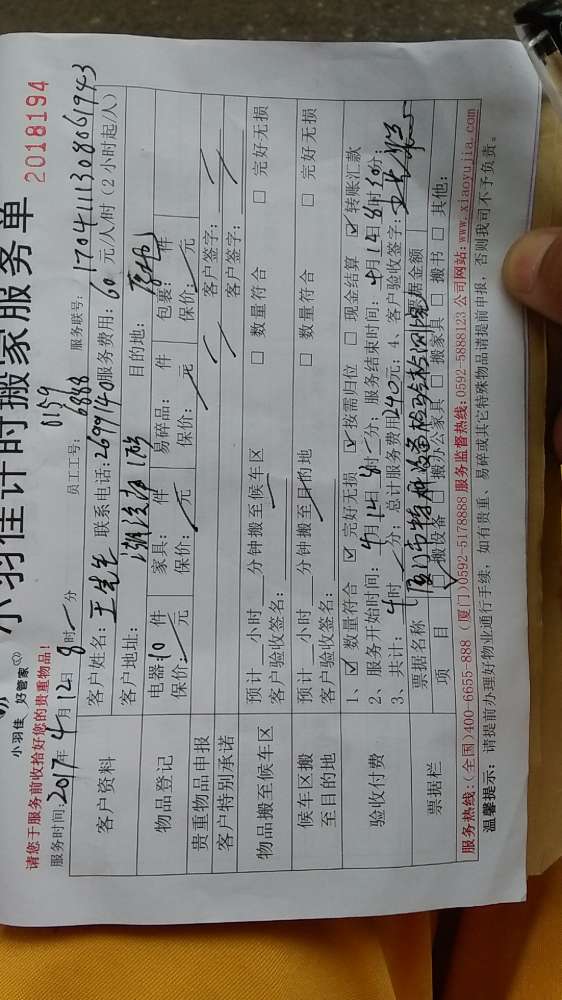 小羽佳 好管家
小羽佳计时搬家服务单
2018194
请您于服务前收拾好您的贵重物品!
服务时间:2017年4月12日8时 分 员工工号:0159 6888 服务联号:1704111308061943
客户资料
客户姓名:王先生 联系电话:2699140 服务费用:60元/人/时(2小时起/人)
客户地址: 目的地:
物品登记
电器:10件 家具: 件 易碎品: 件 包裹: 件
保价: 元 保价: 元 保价: 元 保价: 元
贵重物品申报 客户签字:
客户特别承诺 客户签字:
物品搬至候车区
预计 小时 分钟搬至候车区 □ 数量符合 □ 完好无损
客户验收签名:
候车区搬至目的地
预计 小时 分钟搬至目的地 □ 数量符合 □ 完好无损
客户验收签名:
验收付费
1、☑ 数量符合 ☑ 完好无损 ☑ 按需归位 □ 现金结算 ☑ 转账汇款
2、服务开始时间:4月12日8时 分; 服务结束时间:4月12日 时 分;
3、共计:4时 分; 总计服务费用240元; 4、客户验收签字:
票据栏
票据名称 厦门市特种设备检验检测院 票据金额
项目 ☑搬设备 □ 搬办公家具 □ 搬家具 □ 搬书 □ 其他:
服务热线:(全国)400-6655-888 (厦门)0592-5178888 服务监督热线:0592-5888123 公司网站:www.xiaoyujia.com
温馨提示:请提前办理好物业通行手续,如有贵重、易碎或其它特殊物品请提前申报,否则我司不予负责。